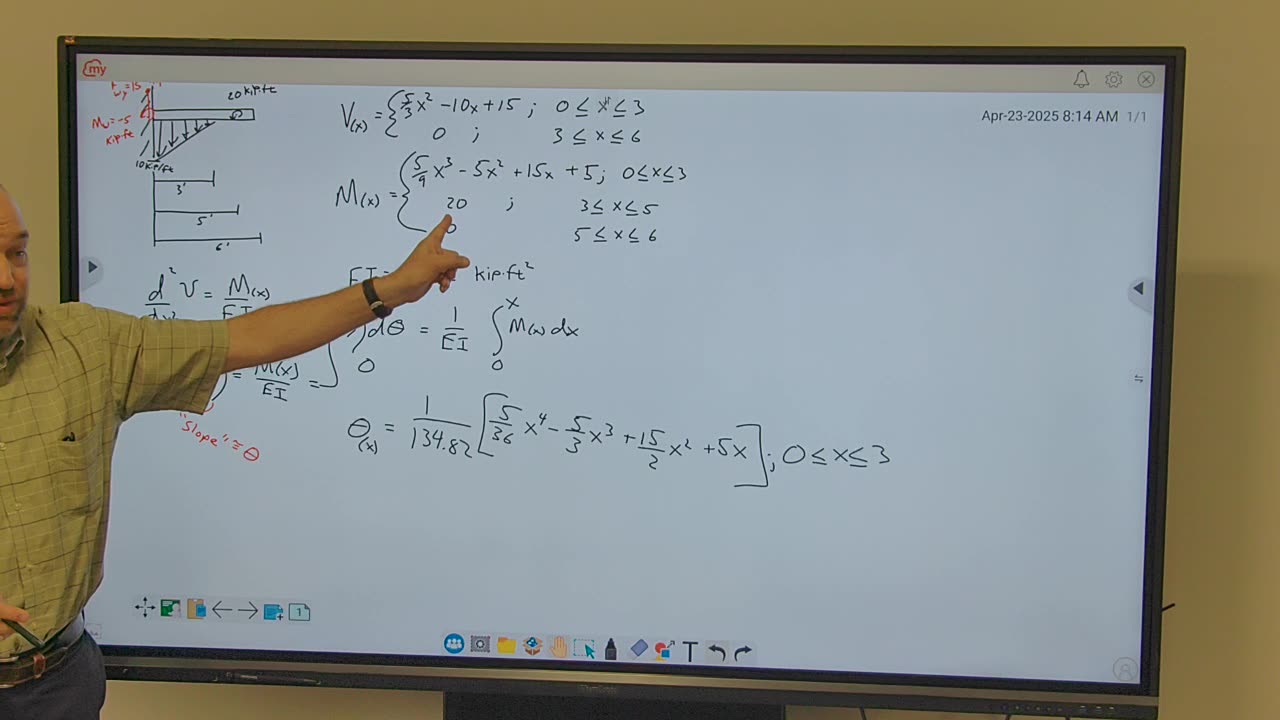 my
Apr-23-2025 8:14 AM 1/1
wy=15
20 kip·ft
Mw=-5
kip·ft
10 kip/ft
3'
5'
6'
V(x) = { 5/3 x² - 10x + 15 ; 0 ≤ x ≤ 3
0 ; 3 ≤ x ≤ 6
M(x) = { 5/9 x³ - 5x² + 15x + 5; 0 ≤ x ≤ 3
20 ; 3 ≤ x ≤ 5
0 5 ≤ x ≤ 6
EI = kip·ft²
d²/dx² v = M(x)/EI
dθ = 1/EI ∫₀ˣ M(x) dx
0
= M(x)/EI =
"Slope" ≡ θ
θ(x) = 1/134.82 [ 5/36 x⁴ - 5/3 x³ + 15/2 x² + 5x ]; 0 ≤ x ≤ 3
1
T